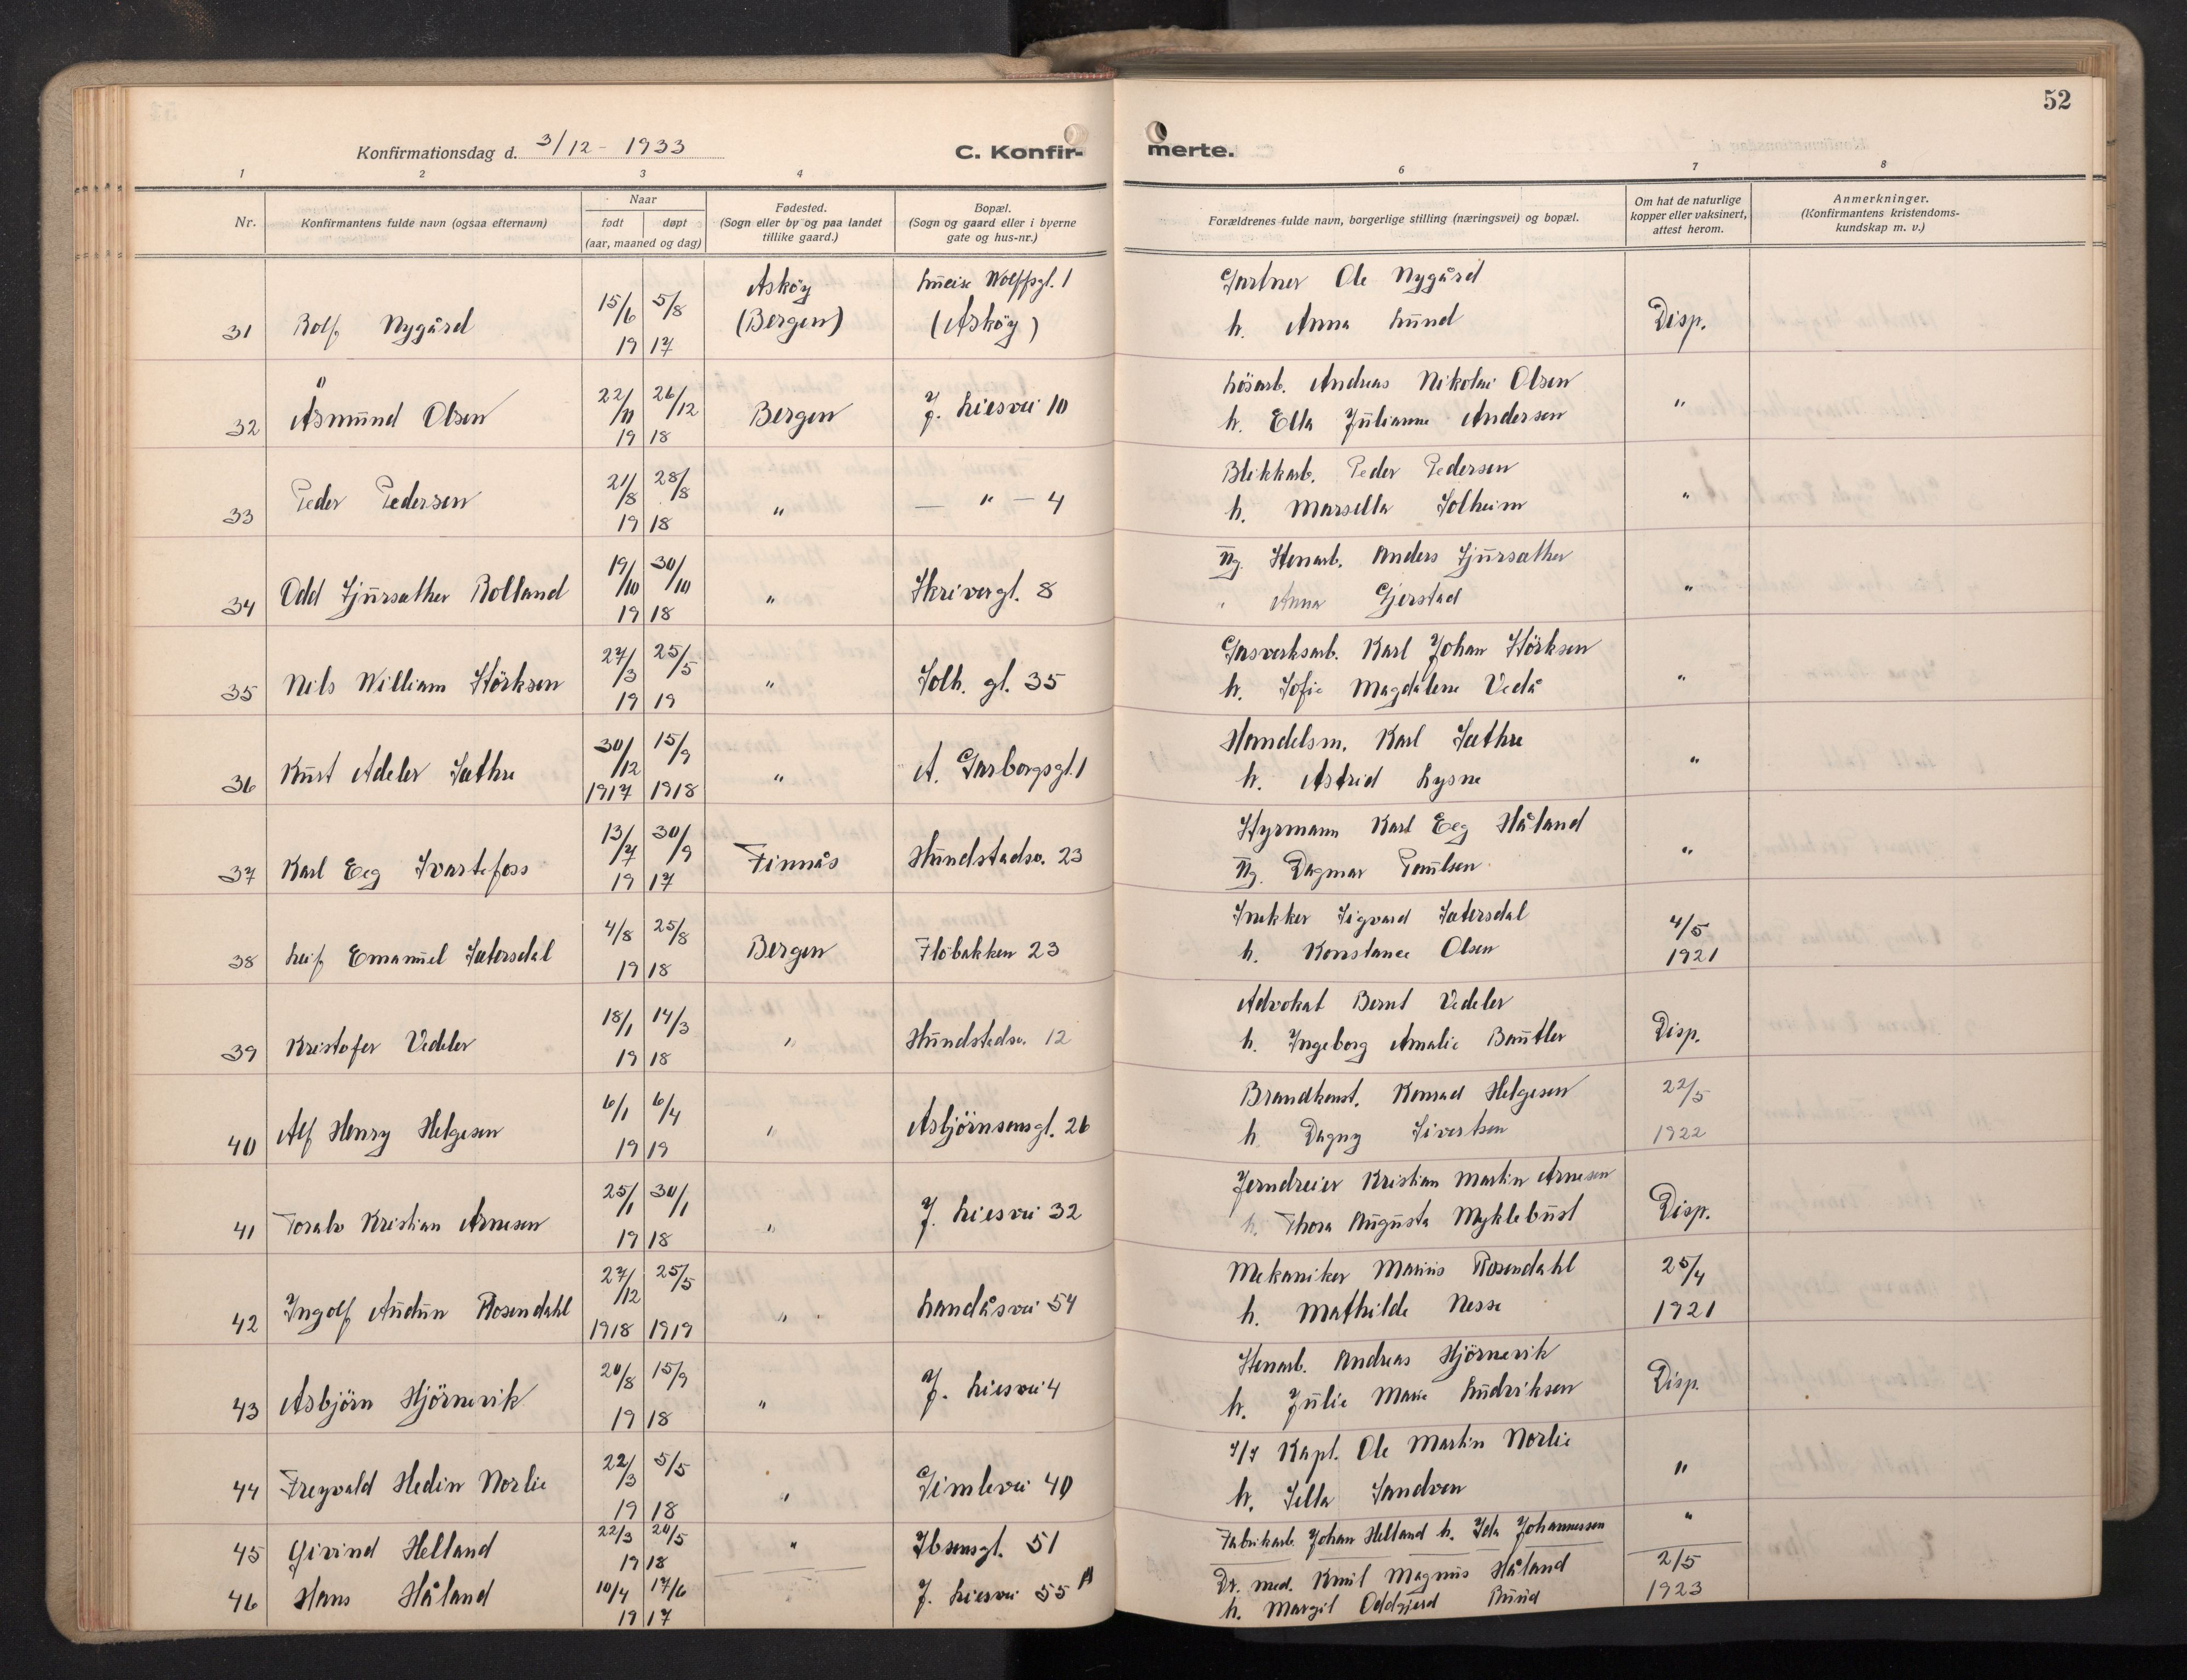 52
Konfirmationsdag d. 3/12 - 1933
C. Konfir-
merte.
1 2 3 4 6 7 8
Nr.
Konfirmantens fulde navn (ogsaa efternavn)
Naar
født døpt
(aar, maaned og dag)
Fødested.
(Sogn eller by og paa landet
tillike gaard.)
Bopæl.
(Sogn og gaard eller i byerne
gate og hus-nr.)
Forældrenes fulde navn, borgerlige stilling (næringsvei) og bopæl.
Om hat de naturlige
kopper eller vaksinert,
attest herom.
Anmerkninger.
(Konfirmantens kristendoms-
kundskap m. v.)
Askøy Wolffsgl. 1 Gartner Ole Nygård
31 Rolf Nygård 15/6 5/8 (Bergen) (Askøy) h. Anna Lund Disp.
19 17
Løsarb. Andreas Nikolai Olsen
32 Åsmund Olsen 22/11 26/12 Bergen J. Liesvei 10 h. Ella Julianne Andersen "
19 18
Blikkarb. Peder Pedersen
33 Peder Pedersen 21/8 28/8 " — " — 4 h. Marsella Solheim "
19 18
Ug. Stenarb. Anders Sjursæther
34 Odd Sjursæther Rolland 19/10 30/10 " Skrivergl. 8 " Anna Gjerstad "
19 18
Gasverksarb. Karl Johan Störksen
35 Nils William Störksen 27/3 25/5 " Solh. gl. 35 h. Sofie Magdalene Vedå "
19 19
Handelsm. Karl Sæthre
36 Kurt Adeler Sæthre 30/12 15/9 " A. Garborgsgl. 1 h. Astrid Lysne "
1917 1918
Styrmann Karl Eeg Håland
37 Karl Eeg Svartefoss 13/7 30/9 Finnås Hundstadsv. 23 Ug. Dagmar Paulsen "
19 17
Snekker Sigvard Sætersdal 4/5
38 Leif Emanuel Sætersdal 4/8 25/8 Bergen Flöbakken 23 h. Konstance Olsen 1921
19 18
Advokat Bernt Vedeler
39 Kristofer Vedeler 18/1 14/3 " Hundstedsv. 12 h. Ingeborg Amalie Bautler Disp.
19 18
Brandkonst. Konrad Helgesen 22/5
40 Alf Henry Helgesen 6/1 6/4 " Asbjörnsensgl. 26 h. Dagny Sivertsen 1922
19 19
Jerndreier Kristian Martin Arnesen
41 Toralv Kristian Arnesen 25/1 30/1 " J. Liesvei 32 h. Thora Augusta Myklebust Disp.
19 18
Mekaniker Marius Rosendahl 25/4
42 Ingolf Audun Rosendahl 27/12 25/5 " Landåsvei 54 h. Mathilde Nesse 1921
1918 1919
Stenarb. Andreas Hjörnevik
43 Asbjörn Hjörnevik 20/8 15/9 " J. Liesvei 4 h. Julie Marie Ludriksen Disp.
19 18
S/S Kapt. Ole Martin Norlie
44 Freyvald Hedin Norlie 22/3 5/5 " Gimlevei 40 h. Silla Sandven "
19 18
45 Øivind Helland 22/3 20/5 " Ibsensgl. 51 Fabrikarb. Johan Helland h. Ida Johannessen "
19 18
Dr. med. Emil Magnus Håland 2/5
46 Hans Håland 10/4 17/6 J. Liesvei 55 A h. Margit Oddgjerd Ruud 1923
19 17